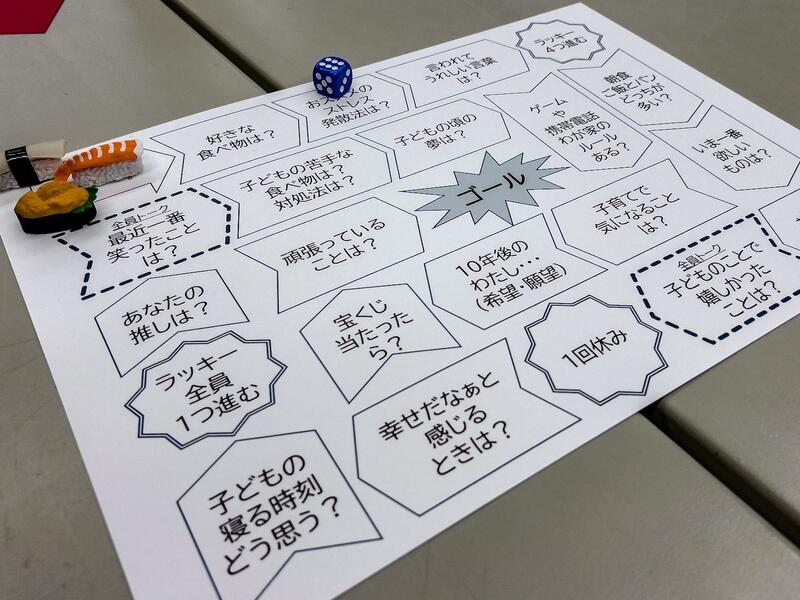 好きな
食べ物は？
ストレス
発散法は？
言われて
うれしい言葉
は？
ラッキー
4つ進む
朝食
ご飯とパン
どっちが
多い？
いま一番
欲しい
ものは？
全員トーク
子どものことで
嬉しかった
ことは？
1回休み
幸せだなぁと
感じる
ときは？
子どもの
寝る時刻
どう思う？
ラッキー
全員
1つ進む
あなたの
推しは？
全員トーク
最近一番
笑ったこと
は？
子どもの苦手な
食べ物は？
対処法は？
子どもの頃の
夢は？
ゲーム
や
携帯電話
わが家の
ルール
ある？
子育てで
気になること
は？
10年後の
わたし･･･
(希望･願望)
宝くじ
当たった
ら？
頑張っている
ことは？
ゴール